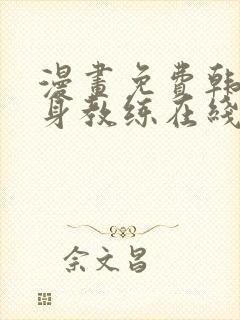 漫畫免費韩
身教练在綫
余文昌